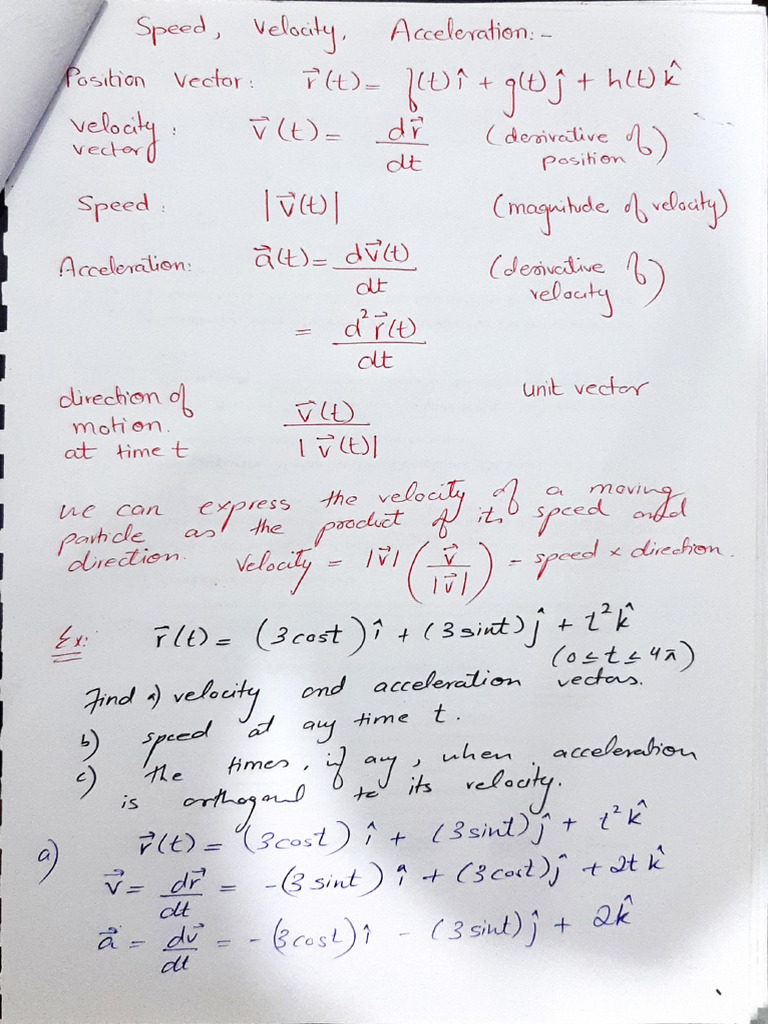 Speed, Velocity, Acceleration:-
Position Vector: r⃗(t) = f(t) î + g(t) ĵ + h(t) k̂
velocity vector: v⃗(t) = dr⃗/dt (derivative of position)
Speed: |v⃗(t)| (magnitude of velocity)
Acceleration: a⃗(t) = dv⃗(t)/dt (derivative of velocity)
= d²r⃗(t)/dt
direction of motion. at time t v⃗(t)/|v⃗(t)| unit vector
we can express the velocity of a moving
particle as the product of its speed and
direction. Velocity = |v⃗| (v⃗/|v⃗|) = speed × direction.
Ex: r⃗(t) = (3cost) î + (3sint) ĵ + t² k̂
(0≤t≤4π)
Find a) velocity and acceleration vectors.
b) speed at any time t.
c) the times, if any, when acceleration
is orthogonal to its velocity.
a) r⃗(t) = (3cost) î + (3sint) ĵ + t² k̂
v⃗ = dr⃗/dt = -(3sint) î + (3cost) ĵ + 2t k̂
a⃗ = dv⃗/dt = -(3cost) î - (3sint) ĵ + 2k̂